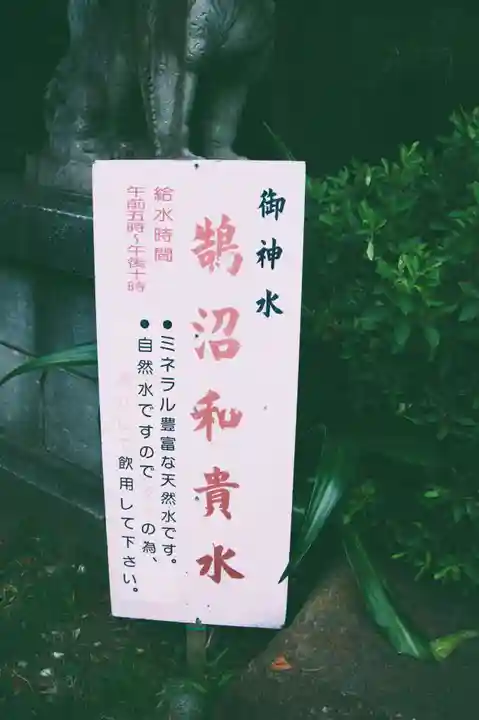 御神水
鵠沼和貴水
給水時間
午前五時～午後十時
●ミネラル豊富な天然水です。
●自然水ですので の為、
飲用して下さい。